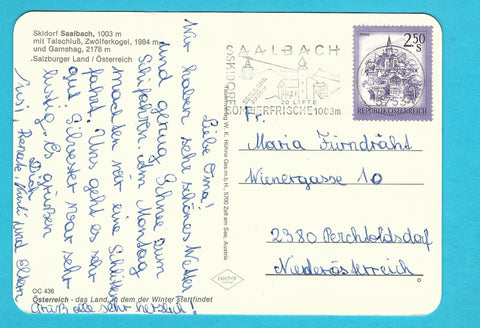 Skidorf Saalbach, 1003 m
mit Talschluß, Zwölferkogel, 1984 m
und Gamshag, 2178 m
Salzburger Land / Österreich
Liebe Oma!
Wir haben sehr schönes Wetter
und genug Schnee zum
Schifahren. Am Montag
machten wir eine Schlitten-
fahrt! Uns geht es sehr
gut. Silvester war sehr
lustig. Es grüßen
Dich
Susi, Renate, Kurti und Eltern
Grüß alle sehr herzlich!
OC 436
Österreich - das Land, in dem der Winter stattfindet
W. K. Höhne Ges.m.b.H., 5700 Zell am See, Austria
SAALBACH
SKIDORF
SOMMERFRISCHE 1003m
30 LIFTE
2.50
S
REPUBLIK ÖSTERREICH
Fr.
Maria Fürndräht
Wienergasse 10
2380 Perchtoldsdorf
Niederösterreich